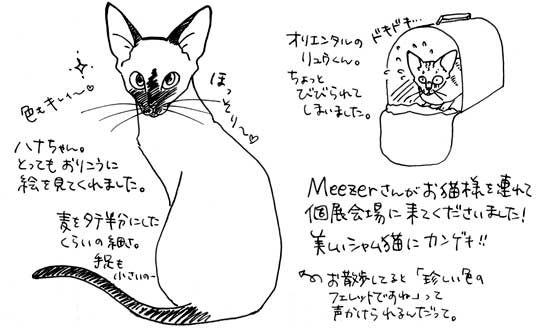 色もキレィ〜♡
ほっそり〜♡
ハナちゃん。
とってもおりこうに
絵を見てくれました。
麦をタテ半分にした
くらいの細さ。
手足も
小さいのー
オリエンタルの
リュウくん。
ちょっと
びびられて
しまいました。
ドキドキ…
Meezerさんがお猫様を連れて
個展会場に来てくださいました!
美しいシャム猫にカンゲキ!!
お散歩してると「珍しい色の
フェレットですね」って
声かけられるんだって。